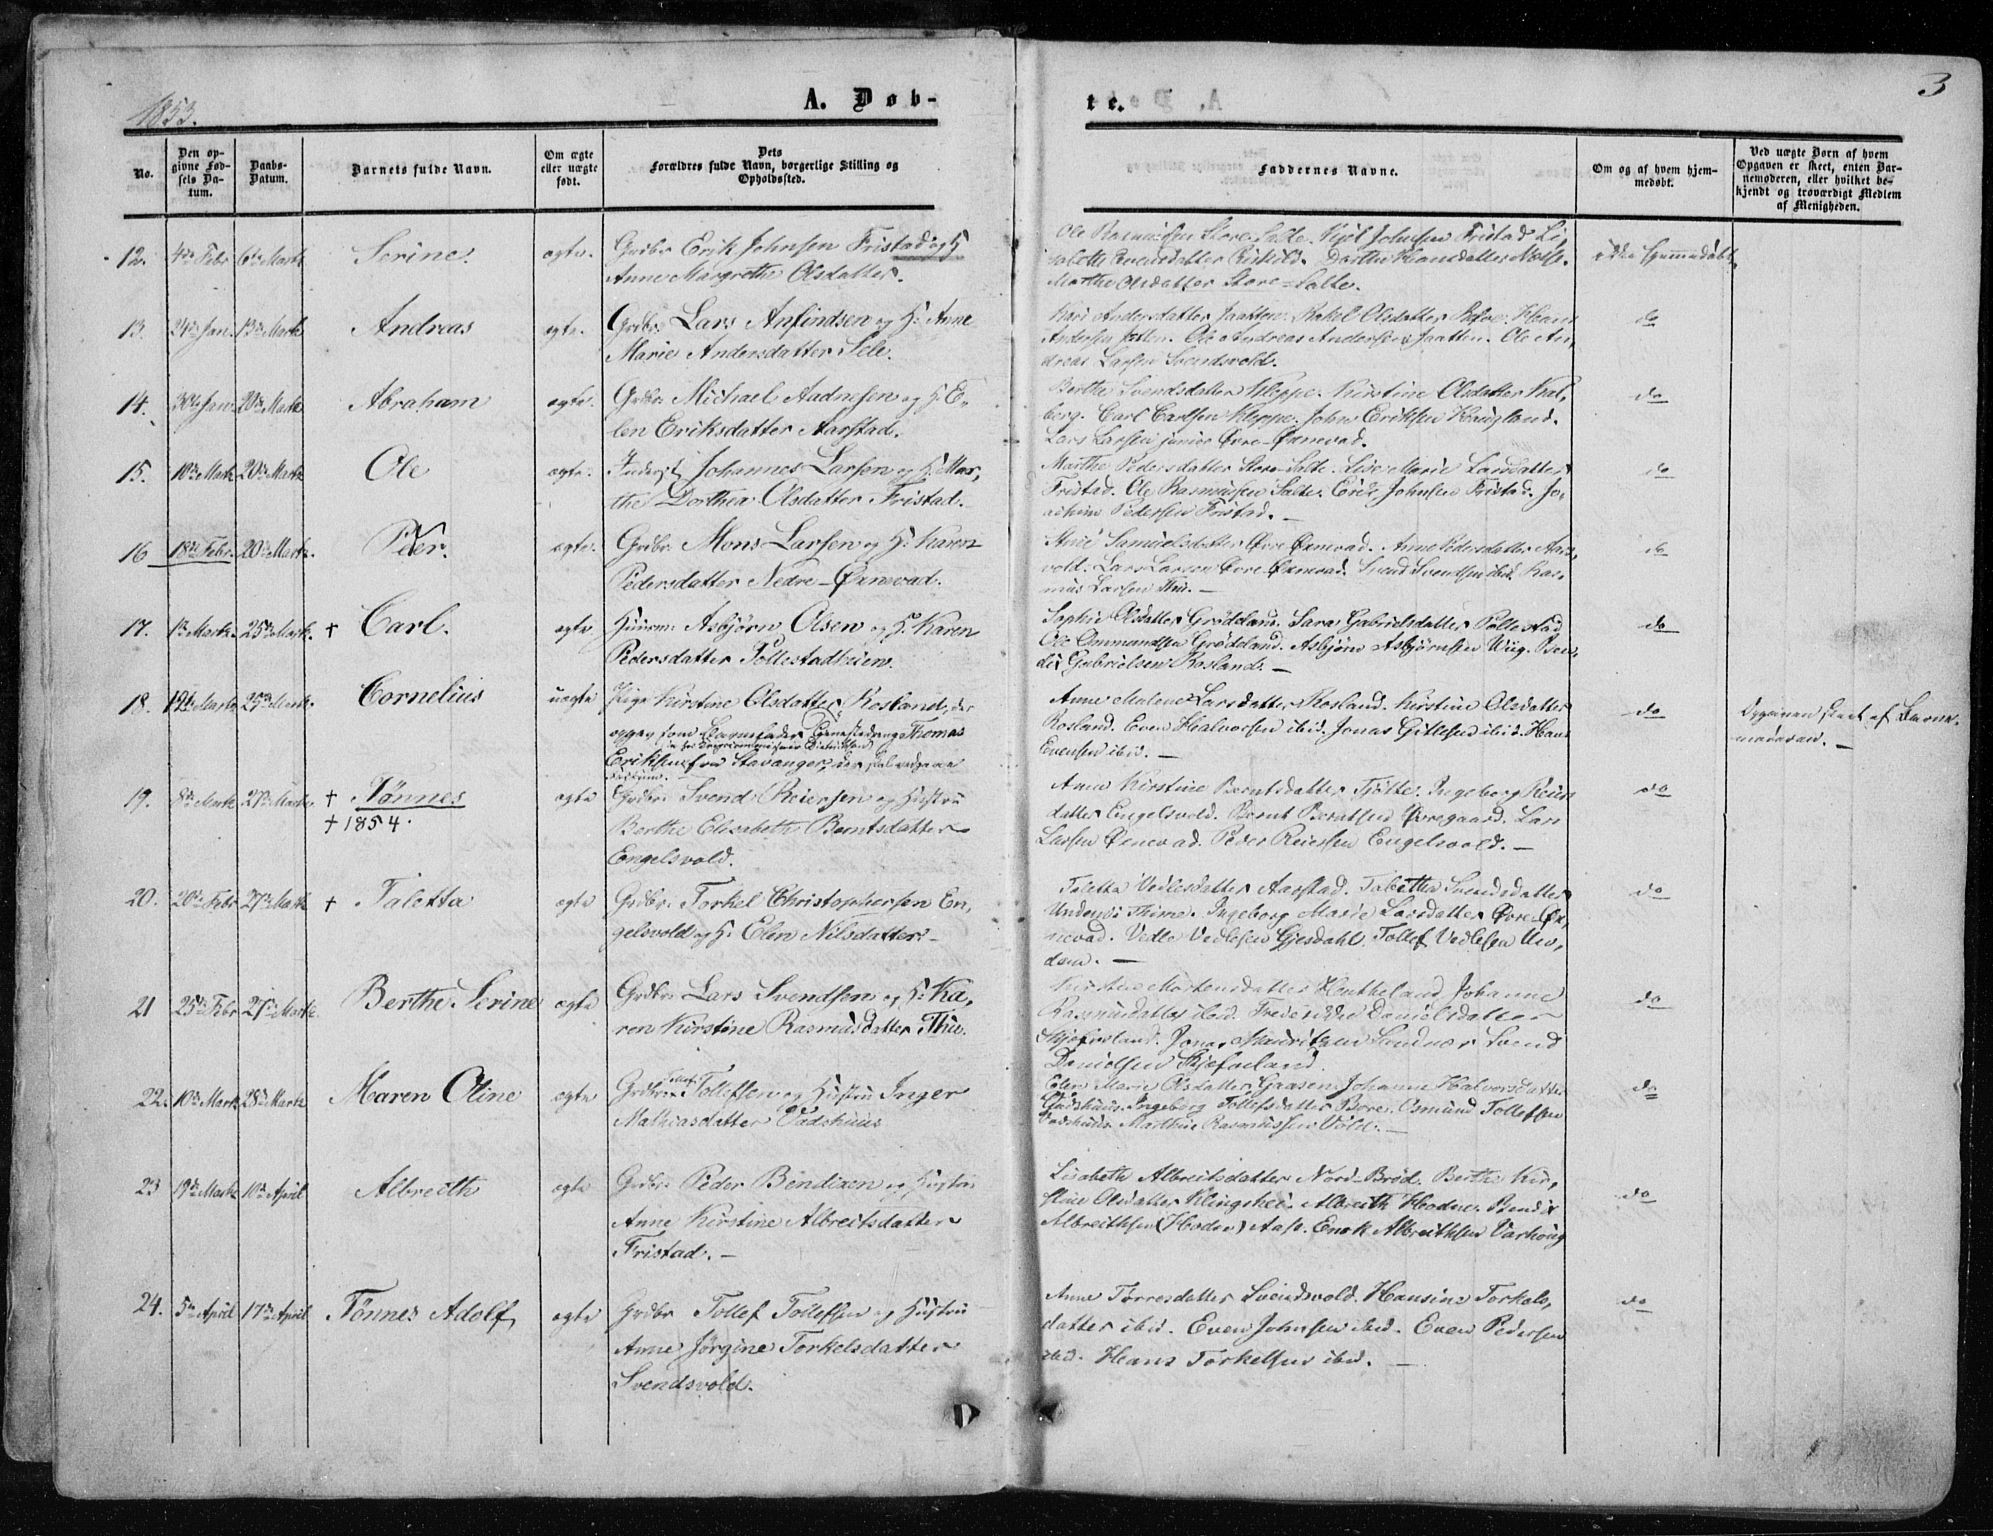 1853.
A. Døb-
te.
3
No.
Den op-
givne Fød-
sels Da-
tum.
Daabs-
Datum.
Barnets fulde Navn.
Om ægte
eller uægte
født.
Dets
Forældres fulde Navn, borgerlige Stilling og
Opholdssted.
Faddernes Navne.
Om og af hvem hjem-
medøbt.
Ved uægte Børn af hvem
Opgaven er skeet, enten Bar-
nemoderen, eller hvilket be-
kjendt og troværdigt Medlem
af Menigheden.
12. 4de Febr 6te Marts Serine. ægte. Grdbr Erik Johnsen Fristad og H
Anne Margrethe Olsdatter.
Ole Rasmussen Store-Salte. Kjøl Johnsen Fristad. Li,
sabeth Dorthe Hansdatter
Marthe Olsdatter Store-Salte.
ikke hjemmedøbt.
13. 24de Jan. 13de Marts Andreas ægte. Grdbr: Lars Anfindsen og H: Anne
Marie Andersdatter Sele.
Kari Andersdatter Jaatten. Rakel Olsdatter Bore. Hans
Andersen Jatten. Ole Andreas Andersen Jaatten. Ole An,
dreas Larsen Svendsvold.
do
14. 30te Jan. 20de Marts Abraham ægte. Grdbr: Michael Aadnesen og H E-
len Eriksdatter Aarstad.
Berthe Svendsdatter Kleppe. Kirstine Olsdatter Kal,
berg. Carl Carlsen Kleppe. John Eriksen Haugland.
Lars Larsen junior Øvre-Øxnevad.
do
15. 10de Marts 20de Marts Ole ægte. Inderst Johannes Larsen og H: Mar,
the Dorthea Olsdatter Fristad.
Marthe Pedersdatter Store-Salte. Lise Marie Larsdatter
Fristad. Ole Rasmussen Salte. Johnsen Fristad. Jo-
achim Pedersen Fristad. —
do
16 18de Febr. 20de Marts. Peder. ægte. Grdbr: Mons Larsen og H: Karen
Pedersdatter Nedre-Øxnevad.
Samuelsdatter Øvre Øxnevad. Anne Pedersdatter
vold. Lars Larsen Øvre-Øxnevad. Svend Svendsen ibid. Ras,
mus Larsen Thu. —
do
17. 1ste Marts. 25de Marts. † Carl. ægte Huusm: Asbjørn Olsen og H. Karen
Pedersdatter Pollestadbruen.
Sophie Olsdatter Grødeland. Sara Gabrielsdatter Pollestad
Ole Ommundsen Grødeland. Asbjørn Asbjørnsen Wiig. Ben,
dix Gabrielsen Rosland. —
do
18. 19de Marts 25de Marts. Cornelius uægte Pige Kirstine Olsdatter Rosland, der
opgav som Barnefader Thomas
Eriksen fra Stavanger, der skal vedgaae
Anne Malene Larsdatter Rosland. Kirstine Olsdatter
Rosland. Even Halvorsen ibid. Jonas Gitlesen ibid. Hans
Evensen ibid. —
do Opgaven skeet af Barne-
moderen. —
19. 8de Marts 27de Marts † Tønnes
† 1854.
ægte Grdbr: Svend Reiersen og Hustru
Berthe Elisabeth Berntsdatter
Engelsvold.
Anne Kirstine Berntsdatter Tjøtte. Ingeborg Reiers
datter Engelsvold. Bernt Berntsen Øvregaard. Lars
Larsen Øxnevad. Peder Reiersen Engelsvold. —
do
20. 20de Febr 27de Marts † Taletta ægte Grdbr: Torkel Christophersen En,
gelsvold og H: Elen Nilsdatter: —
Taletta Vedlesdatter Aarstad. Tabitha Svendsdatter
Undem Thime. Ingeborg Marie Larsdatter Øvre-Øx,
nevad. Vedle Vedlesen Gjesdahl. Tollef Vedlesen Un,
dem. —
do
21 25de Febr 27de Marts Berthe Serine ægte Grdbr: Lars Svendsen og H: Ka,
ren Kirstine Rasmusdatter Thu.
Mortensdatter Johanne
Rasmusdatter ibid. Frederikke Danielsdatter
Skjæveland. Jonas Mauritzen Sandnes Svend
Danielsen Skjæveland.
do
22. 10de Marts 28de Marts Maren Oline ægte Grdbr: Tollefsen og Hustru Inger
Mathiasdatter Vadshuus
Elen Marie Olsdatter Gaasen. Johanne Halvorsdatter
Vadshuus. Ingeborg Tollefsdatter Bore. Osmund Tollefsen
Vadshuus. Marthin Rasmussen Vold. —
do
23 19de Marts 10de April Albreith ægte Grdbr: Peder Bendixen og Hustru
Anne Kirstine Albreitsdatter
Fristad. —
Lisabeth Albreitsdatter Nord-Brød. Berthe Kir,
stine Olsdatter Klingshei. Albreith Hodne. Bendix
Albreithsen (Hodne) Aase. Enok Albreithsen Varhoug
do
24. 5te April 17de April Tønnes Adolf ægte Grdbr Tollef Tollefsen og Hustru
Anne Jørgine Torkelsdatter
Svendsvold.
Anne Torresdatter Svendsvold. Hansine Torkels,
datter ibid. Even Johnsen ibid. Even Pedersen
ibid. Hans Torkelsen ibid. —
do